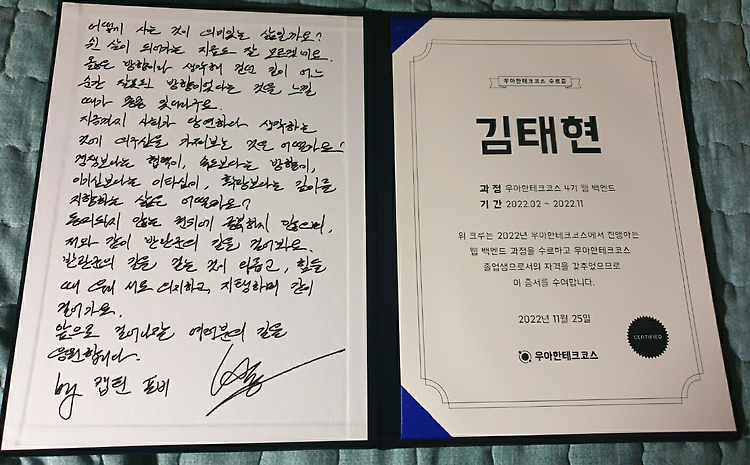 어떻게 사는 것이 의미있는 삶일까요?
쉰 살이 되어가는 지금도 잘 모르겠어요.
옳은 방향이라 생각해 걷던 길이 어느
순간 잘못된 방향이었다는 것을 느낄
때가 종종 있더라구요.
지금까지 사회가 당연하다 생각하는
것에 의구심을 가져보는 것은 어떨까요?
경쟁보다는 협력이, 속도보다는 방향이,
이기심보다는 이타심이, 확장보다는 깊이를
지향하는 삶은 어떨까요?
동의되지 않는 권위에 굴복하지 말았으면,
저와 같이 반란군의 길을 걸어가요.
반란군의 길을 걷는 것이 외롭고, 힘들
때 우리 서로 의지하고, 지탱하며 같이
걸어가요.
앞으로 걸어나갈 여러분의 길을
응원합니다.
by 캡틴 포비
우아한테크코스 수료증
김태현
과 정 우아한테크코스 4기 웹 백엔드
기 간 2022.02 ~ 2022.11
위 크루는 2022년 우아한테크코스에서 진행하는
웹 백엔드 과정을 수료하고 우아한테크코스
졸업생으로서의 자격을 갖추었으므로
이 증서를 수여합니다.
2022년 11월 25일
CERTIFIED
우아한테크코스